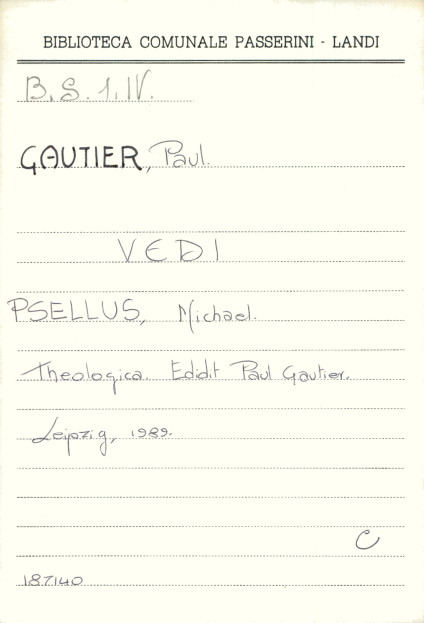 BIBLIOTECA COMUNALE PASSERINI - LANDI
B.S. 1. IV.
GAUTIER, Paul.
VEDI
PSELLUS, Michael.
Theologica. Edidit Paul Gautier.
Leipzig, 1989.
C
187140